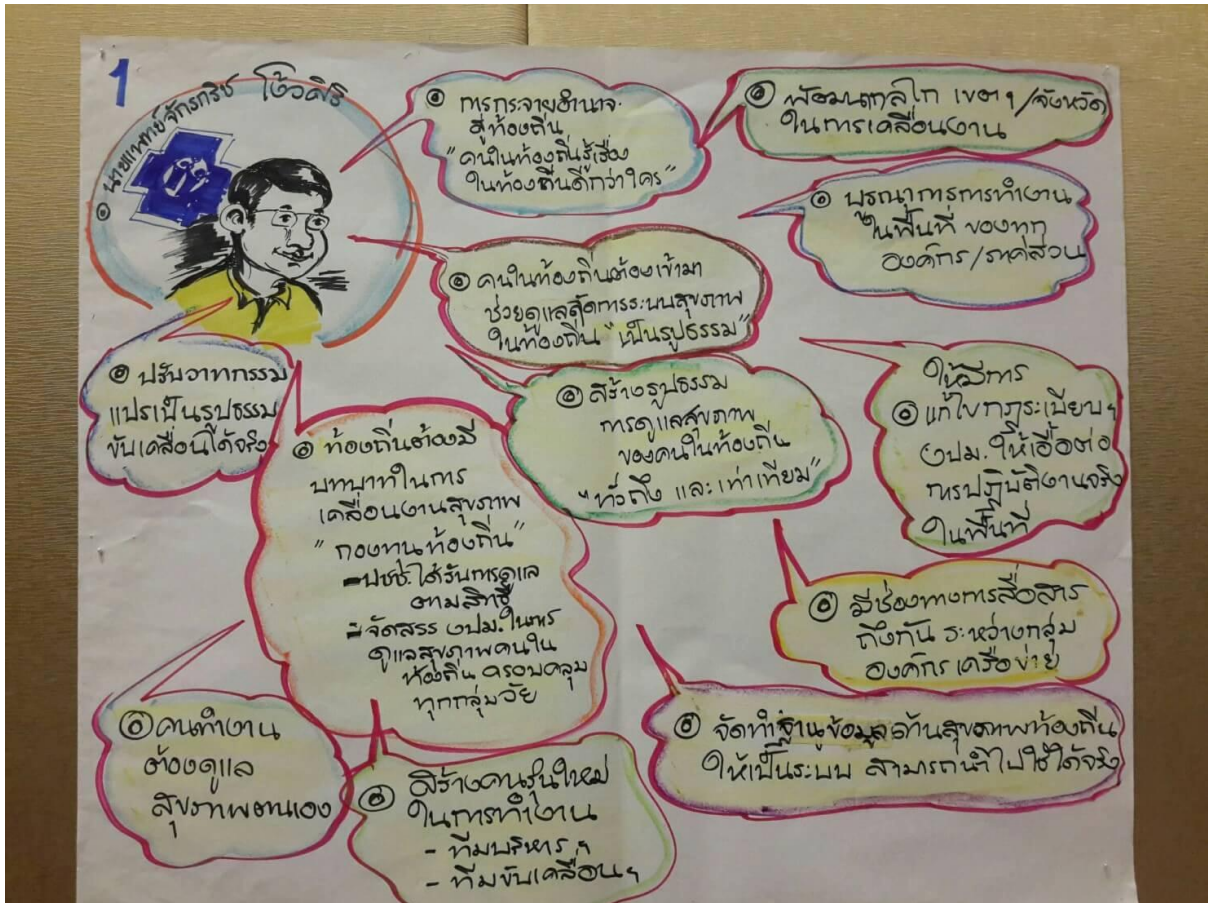 1
นายแพทย์จักรกริช โง้วศิริ
การกระจายอำนาจ
สู่ท้องถิ่น
"คนในท้องถิ่นรู้เรื่อง
ในท้องถิ่นดีกว่าใคร"
พัฒนากลไก เขตฯ/จังหวัด
ในการเคลื่อนงาน
บูรณาการการทำงาน
ในพื้นที่ ของทุก
องค์กร/ภาคส่วน
คนในท้องถิ่นต้องเข้ามา
ช่วยดูแลจัดการระบบสุขภาพ
ในท้องถิ่น "เป็นรูปธรรม"
ปรับวาทกรรม
แปรเป็นรูปธรรม
ขับเคลื่อนได้จริง
สร้างรูปธรรม
การดูแลสุขภาพ
ของคนในท้องถิ่น
"ทั่วถึง และเท่าเทียม"
ให้มีการ
แก้ไขกฎระเบียบฯ
งปม.ให้เอื้อต่อ
การปฏิบัติงานจริง
ในพื้นที่
ท้องถิ่นต้องมี
บทบาทในการ
เคลื่อนงานสุขภาพ
"กองทุนท้องถิ่น"
-ปชช.ได้รับการดูแล
ตามสิทธิ
-จัดสรร งปม.ในการ
ดูแลสุขภาพคนใน
ท้องถิ่น ครอบคลุม
ทุกกลุ่มวัย
มีช่องทางการสื่อสาร
ถึงกัน ระหว่างกลุ่ม
องค์กร เครือข่าย
จัดทำฐานข้อมูลด้านสุขภาพท้องถิ่น
ให้เป็นระบบ สามารถนำไปใช้ได้จริง
คนทำงาน
ต้องดูแล
สุขภาพตนเอง
สร้างคนรุ่นใหม่
ในการทำงาน
- ทีมบริหารฯ
- ทีมขับเคลื่อนฯ